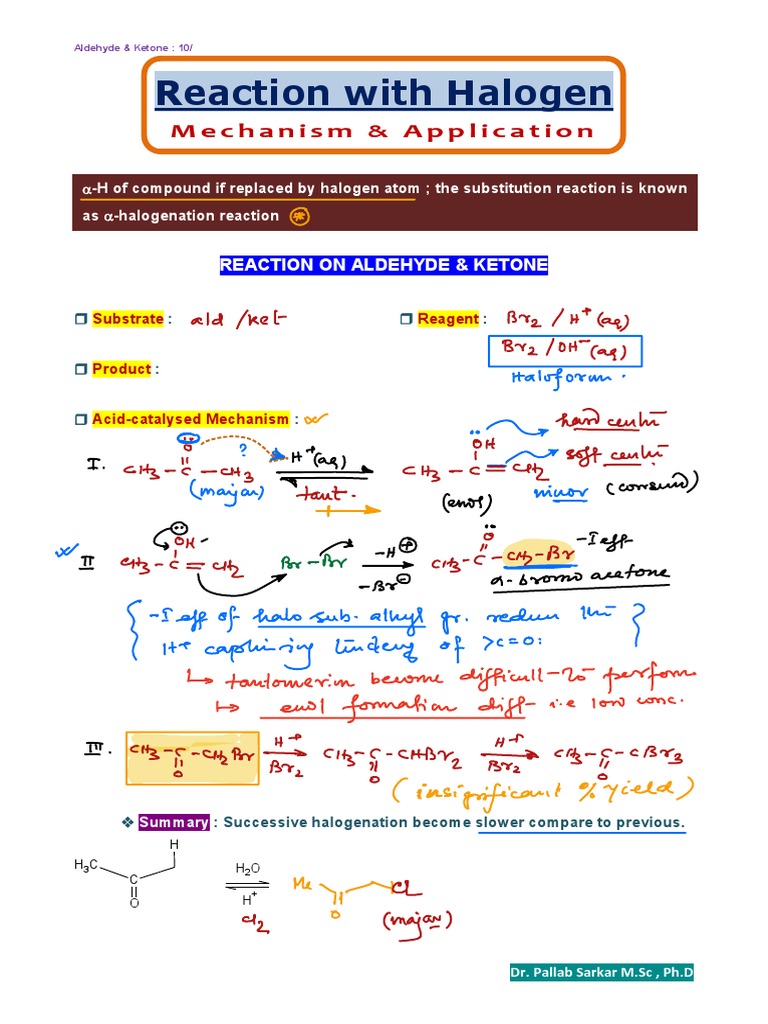 Aldehyde & Ketone : 10/
Reaction with Halogen
Mechanism & Application
α-H of compound if replaced by halogen atom ; the substitution reaction is known
as α-halogenation reaction
REACTION ON ALDEHYDE & KETONE
❒ Substrate : ald / ket
❒ Reagent : Br2 / H+ (aq)
Br2 / OH− (aq)
Haloform.
❒ Product :
❒ Acid-catalysed Mechanism :
I. CH3 – C – CH3
O
(major)
?
H+ (aq)
taut.
CH3 – C = CH2
OH
(enol)
minor
hard
soft
II
CH3 – C = CH2
OH
Br – Br
–H+
–Br−
CH3 – C – CH2 – Br
O
–I eff
α-bromo acetone
–I eff of halo sub. alkyl gr.
H+ of >C=O:
become difficult to perform
enol formation diff i.e low conc.
III. CH3 – C – CH2Br
O
H+
Br2
CH3 – C – CHBr2
O
H+
Br2
CH3 – C – CBr3
O
(insignificant % yield)
❖ Summary : Successive halogenation become slower compare to previous.
H
H3C
C
O
H2O
H+
Cl2
Me
O
Cl
(major)
Dr. Pallab Sarkar M.Sc , Ph.D